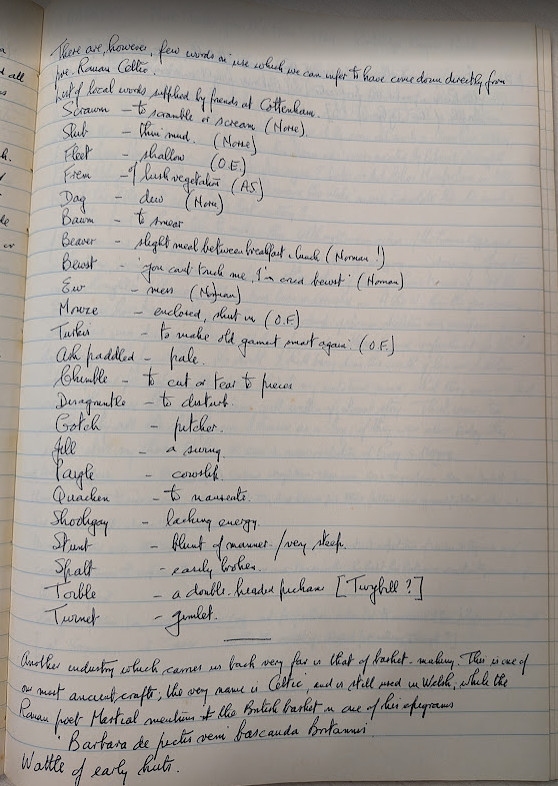 There are, however, few words in use which we can infer to have come down directly from
pre. Roman Celtic.
List of local words supplied by friends at Cottenham.
Scrawm - to scramble or scream (Norse)
Slub - thin mud. (Norse)
Fleet - shallow (O.E.)
Frem - of lush vegetation (AS)
Dag - dew (Norse)
Bawm - to smear
Beaver - slight meal between breakfast & lunch (Norman!)
Bewst - 'you can't touch me, I'm bewst' (Norman)
- mess (Norman)
- enclosed, shut in (O.F.)
- to make old garment smart again. (O.F.)
Ash paddled - pale.
Chumble - to cut or tear to pieces
Disragmentle - to disturb.
Gotch - pitcher.
Jill - a swing.
Paigle - cowslip.
Quacken - to nauseate.
- lacking energy.
Stunt - blunt of manner. / very steep.
Spalt - easily broken.
Torble - a double-headed pickaxe [Twybill?]
Turnet - gimlet.
Another industry which carries us back very far is that of basket-making. This is one of
our most ancient crafts; the very name is Celtic, and is still used in Welsh, while the
Roman poet Martial mentions the British basket in one of his epigrams
"Barbara de pictis veni bascauda Britannis"
Wattle of early huts.